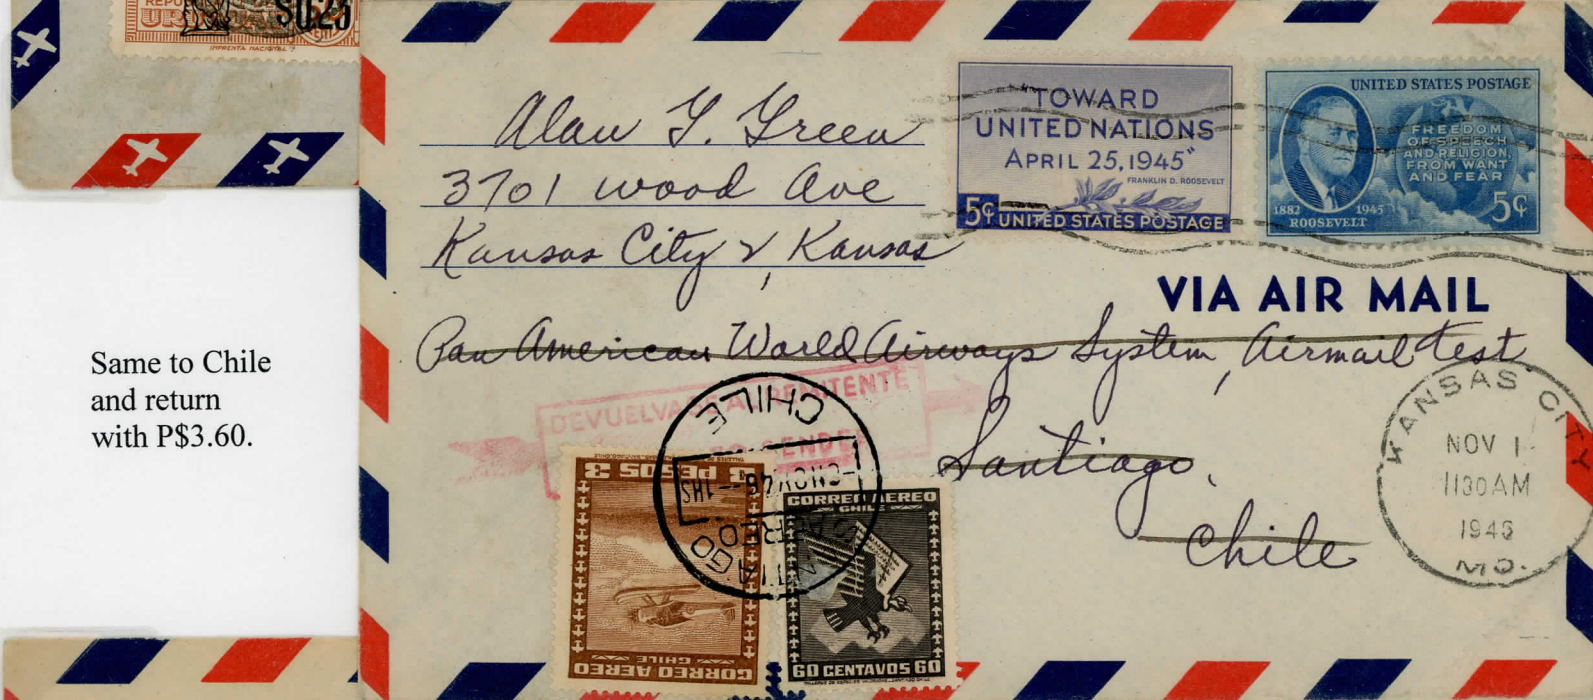 REPU
U
S0.25
IMPRENTA NACIONAL
Same to Chile
and return
with P$3.60.
Alan G. Green
3701 Wood Ave
Kansas City 2, Kansas
"TOWARD
UNITED NATIONS
APRIL 25, 1945"
FRANKLIN D. ROOSEVELT
5¢ UNITED STATES POSTAGE
UNITED STATES POSTAGE
FREEDOM
OF SPEECH
AND RELIGION,
FROM WANT
AND FEAR
1882 1945
ROOSEVELT
5¢
VIA AIR MAIL
Pan American World Airways System, Airmail test
Santiago,
Chile
DEVUELVASE AL REMITENTE
SENDER
KANSAS CITY
NOV 1
1130 AM
1946
MO.
SANTIAGO
AEREO
NOV 46 - 1HS
CHILE
3 PESOS 3
CHILE
CORREO AEREO
CORREO AEREO
CHILE
60 CENTAVOS 60